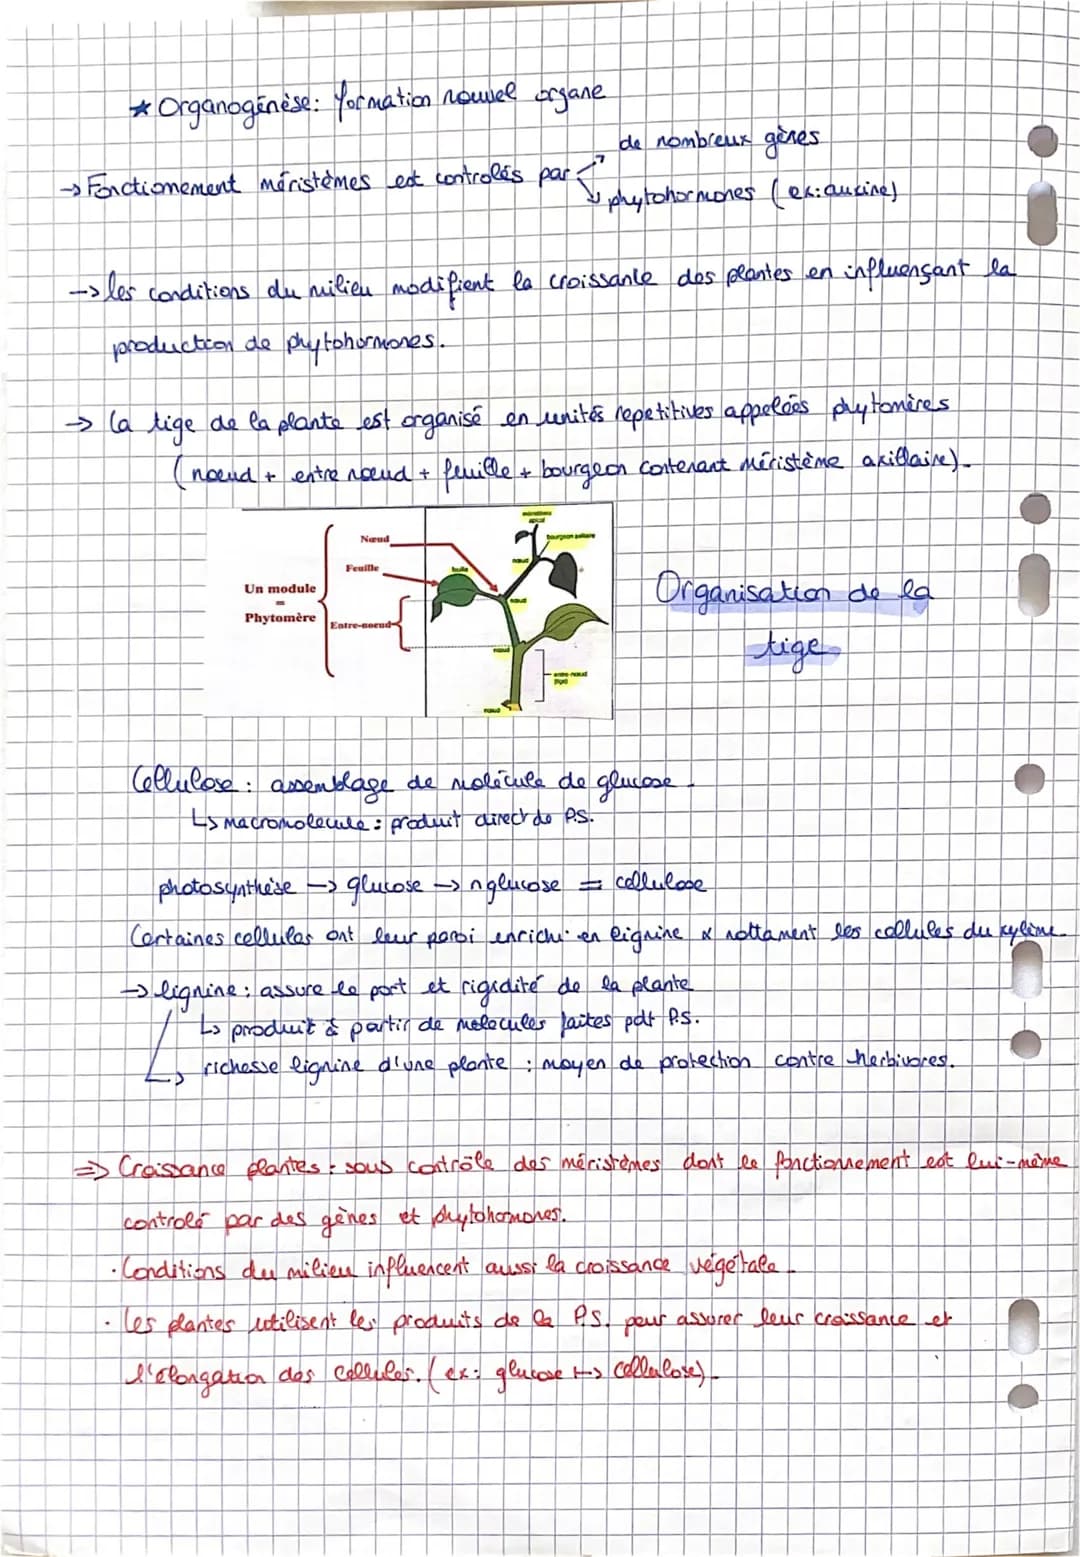 * Organogénèse: formation nouvel organe
de nombreux gènes
→ Fonctionement méristèmes est controlés par
phytohormones (ex: auxine)
→ les conditions du milieu modifient la croissante des plantes en influençant la
production de phytohormones.
→ la tige de la plante est organisé en unités repetitives appelées phytomères
(nœud + entre nœud + feuille + bourgeon contenant méristème axillaire).
méristème
apical
Nœud
bourgeon axillaire
nœud
Feuille
feuille
Un module
=
Phytomère
nœud
Entre-noeud
nœud
entre-nœud
(tige)
nœud
Organisation de la
tige
Cellulose: assemblage de molécule de glucose.
↳ macromolecule: produit direct de P.S.
photosynthèse → glucose → n glucose = cellulose
Certaines cellules ont leur paroi enrichi en lignine & nottament les cellules du xylème.
→ lignine: assure le port et rigidité de la plante
↳ produit à partir de molecules faites par P.S.
↳ richesse lignine d'une plante: moyen de protection contre herbivores.
⇒ Croissance plantes: sous contrôle des méristèmes dont le fonctionnement est lui-même
controlé par des gènes et phytohormones.
· Conditions du milieu influencent aussi la croissance végétale.
· Les plantes utilisent les produits de la P.S. pour assurer leur croissance et
l'élongation des cellules. (ex: glucose ↦ cellulose).